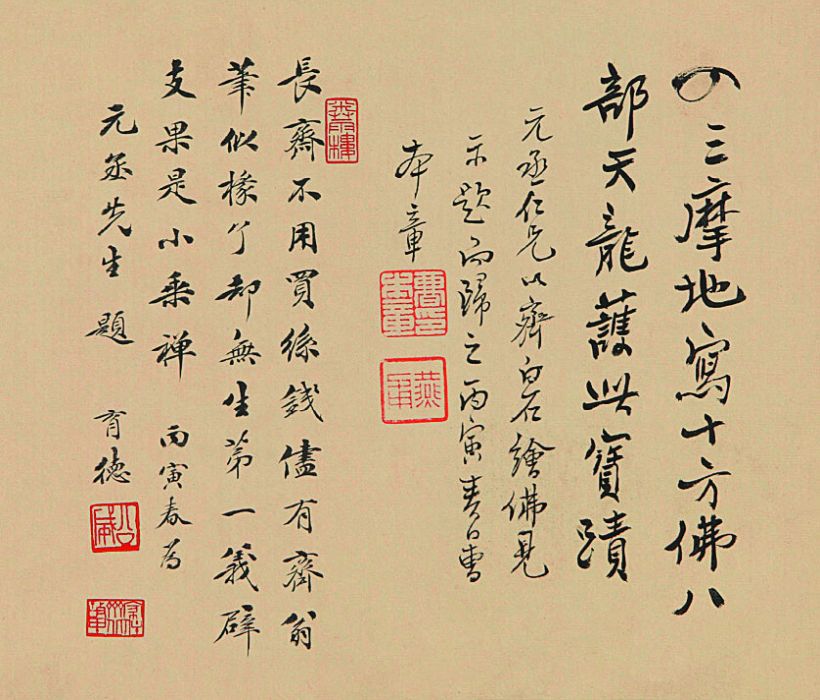 以三摩地寫十方佛八
部天龍護此寶蹟
元丞仁兄以齊白石繪佛見
示題而歸之丙寅春日曹
本章
長齋不用買絲錢儘有齊翁
筆似椽了却無生第一義辟
支果是小乘禪 丙寅春為
元丞先生題 育德